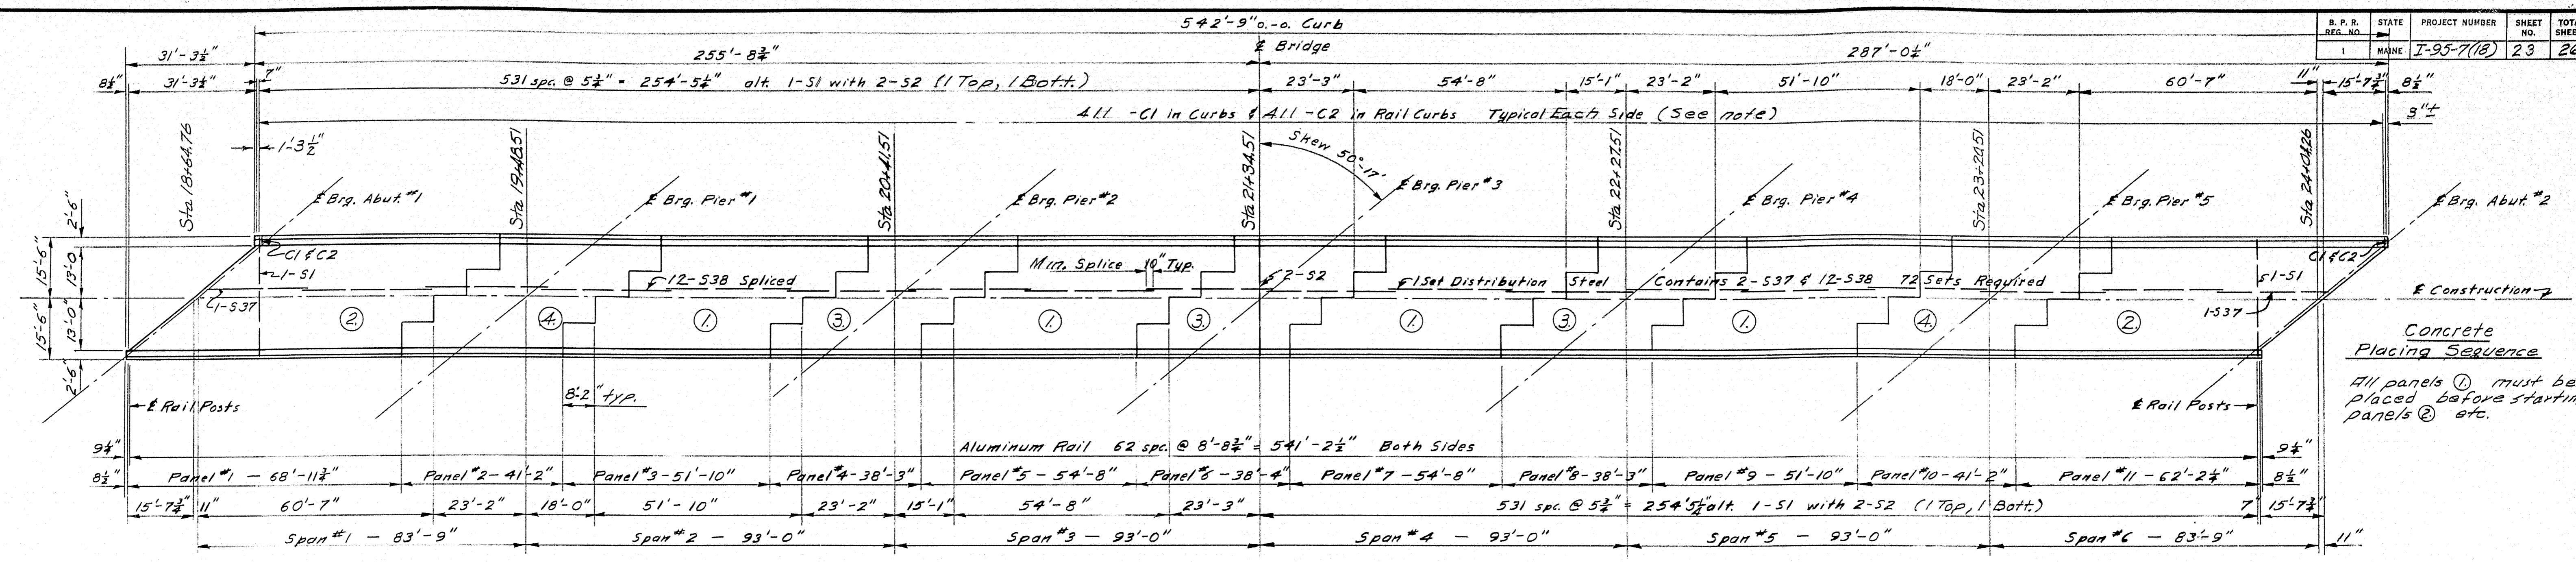 542'-9" o.-o. Curb
B. P. R. REG. NO. STATE PROJECT NUMBER SHEET NO.
1 MAINE I-95-7(18) 23
31'-3½" 255'-8¾" ℄ Bridge 287'-0¼"
8½" 31'-3½" 7" 531 spc. @ 5¾" = 254'-5¼" alt. 1-S1 with 2-S2 (1 Top, 1 Bott.) 23'-3" 54'-8" 15'-1" 23'-2" 51'-10" 18'-0" 23'-2" 60'-7" 11" 15'-7¾" 8½"
All -C1 in Curbs & All -C2 in Rail Curbs Typical Each Side (See note) 3"±
1'-3½"
Sta 18+64.76 Sta 19+48.51 Sta 20+41.51 Sta 21+34.51 Skew 50°-17' Sta 22+27.51 Sta 23+20.51 Sta 24+04.26
℄ Brg. Abut. #1 ℄ Brg. Pier #1 ℄ Brg. Pier #2 ℄ Brg. Pier #3 ℄ Brg. Pier #4 ℄ Brg. Pier #5 ℄ Brg. Abut. #2
2'-6" 15'-6" 13'-0 15'-6" 13'-0" 2'-6"
C1 & C2 C1 & C2
1-S1 12-S38 Spliced Min. Splice 10" Typ. 2-S2 1 Set Distribution Steel Contains 2-S37 & 12-S38 72 Sets Required 1-S1
1-S37 1-S37 ℄ Construction
2. 4. 1. 3. 1. 3. 1. 3. 1. 4. 2.
Concrete
Placing Sequence
All panels 1. must be
placed before
panels 2. etc.
℄ Rail Posts 8'-2" typ. ℄ Rail Posts
9¼" Aluminum Rail 62 spc. @ 8'-8¾" = 541'-2½" Both Sides 9¼"
8½" Panel #1 - 68'-11¾" Panel #2 - 41'-2" Panel #3 - 51'-10" Panel #4 - 38'-3" Panel #5 - 54'-8" Panel #6 - 38'-4" Panel #7 - 54'-8" Panel #8 - 38'-3" Panel #9 - 51'-10" Panel #10 - 41'-2" Panel #11 - 62'-2¼" 8½"
15'-7¾" 11" 60'-7" 23'-2" 18'-0" 51'-10" 23'-2" 15'-1" 54'-8" 23'-3" 531 spc. @ 5¾" = 254'5¼" alt. 1-S1 with 2-S2 (1 Top, 1 Bott.) 7" 15'-7¾"
Span #1 - 83'-9" Span #2 - 93'-0" Span #3 - 93'-0" Span #4 - 93'-0" Span #5 - 93'-0" Span #6 - 83'-9" 11"